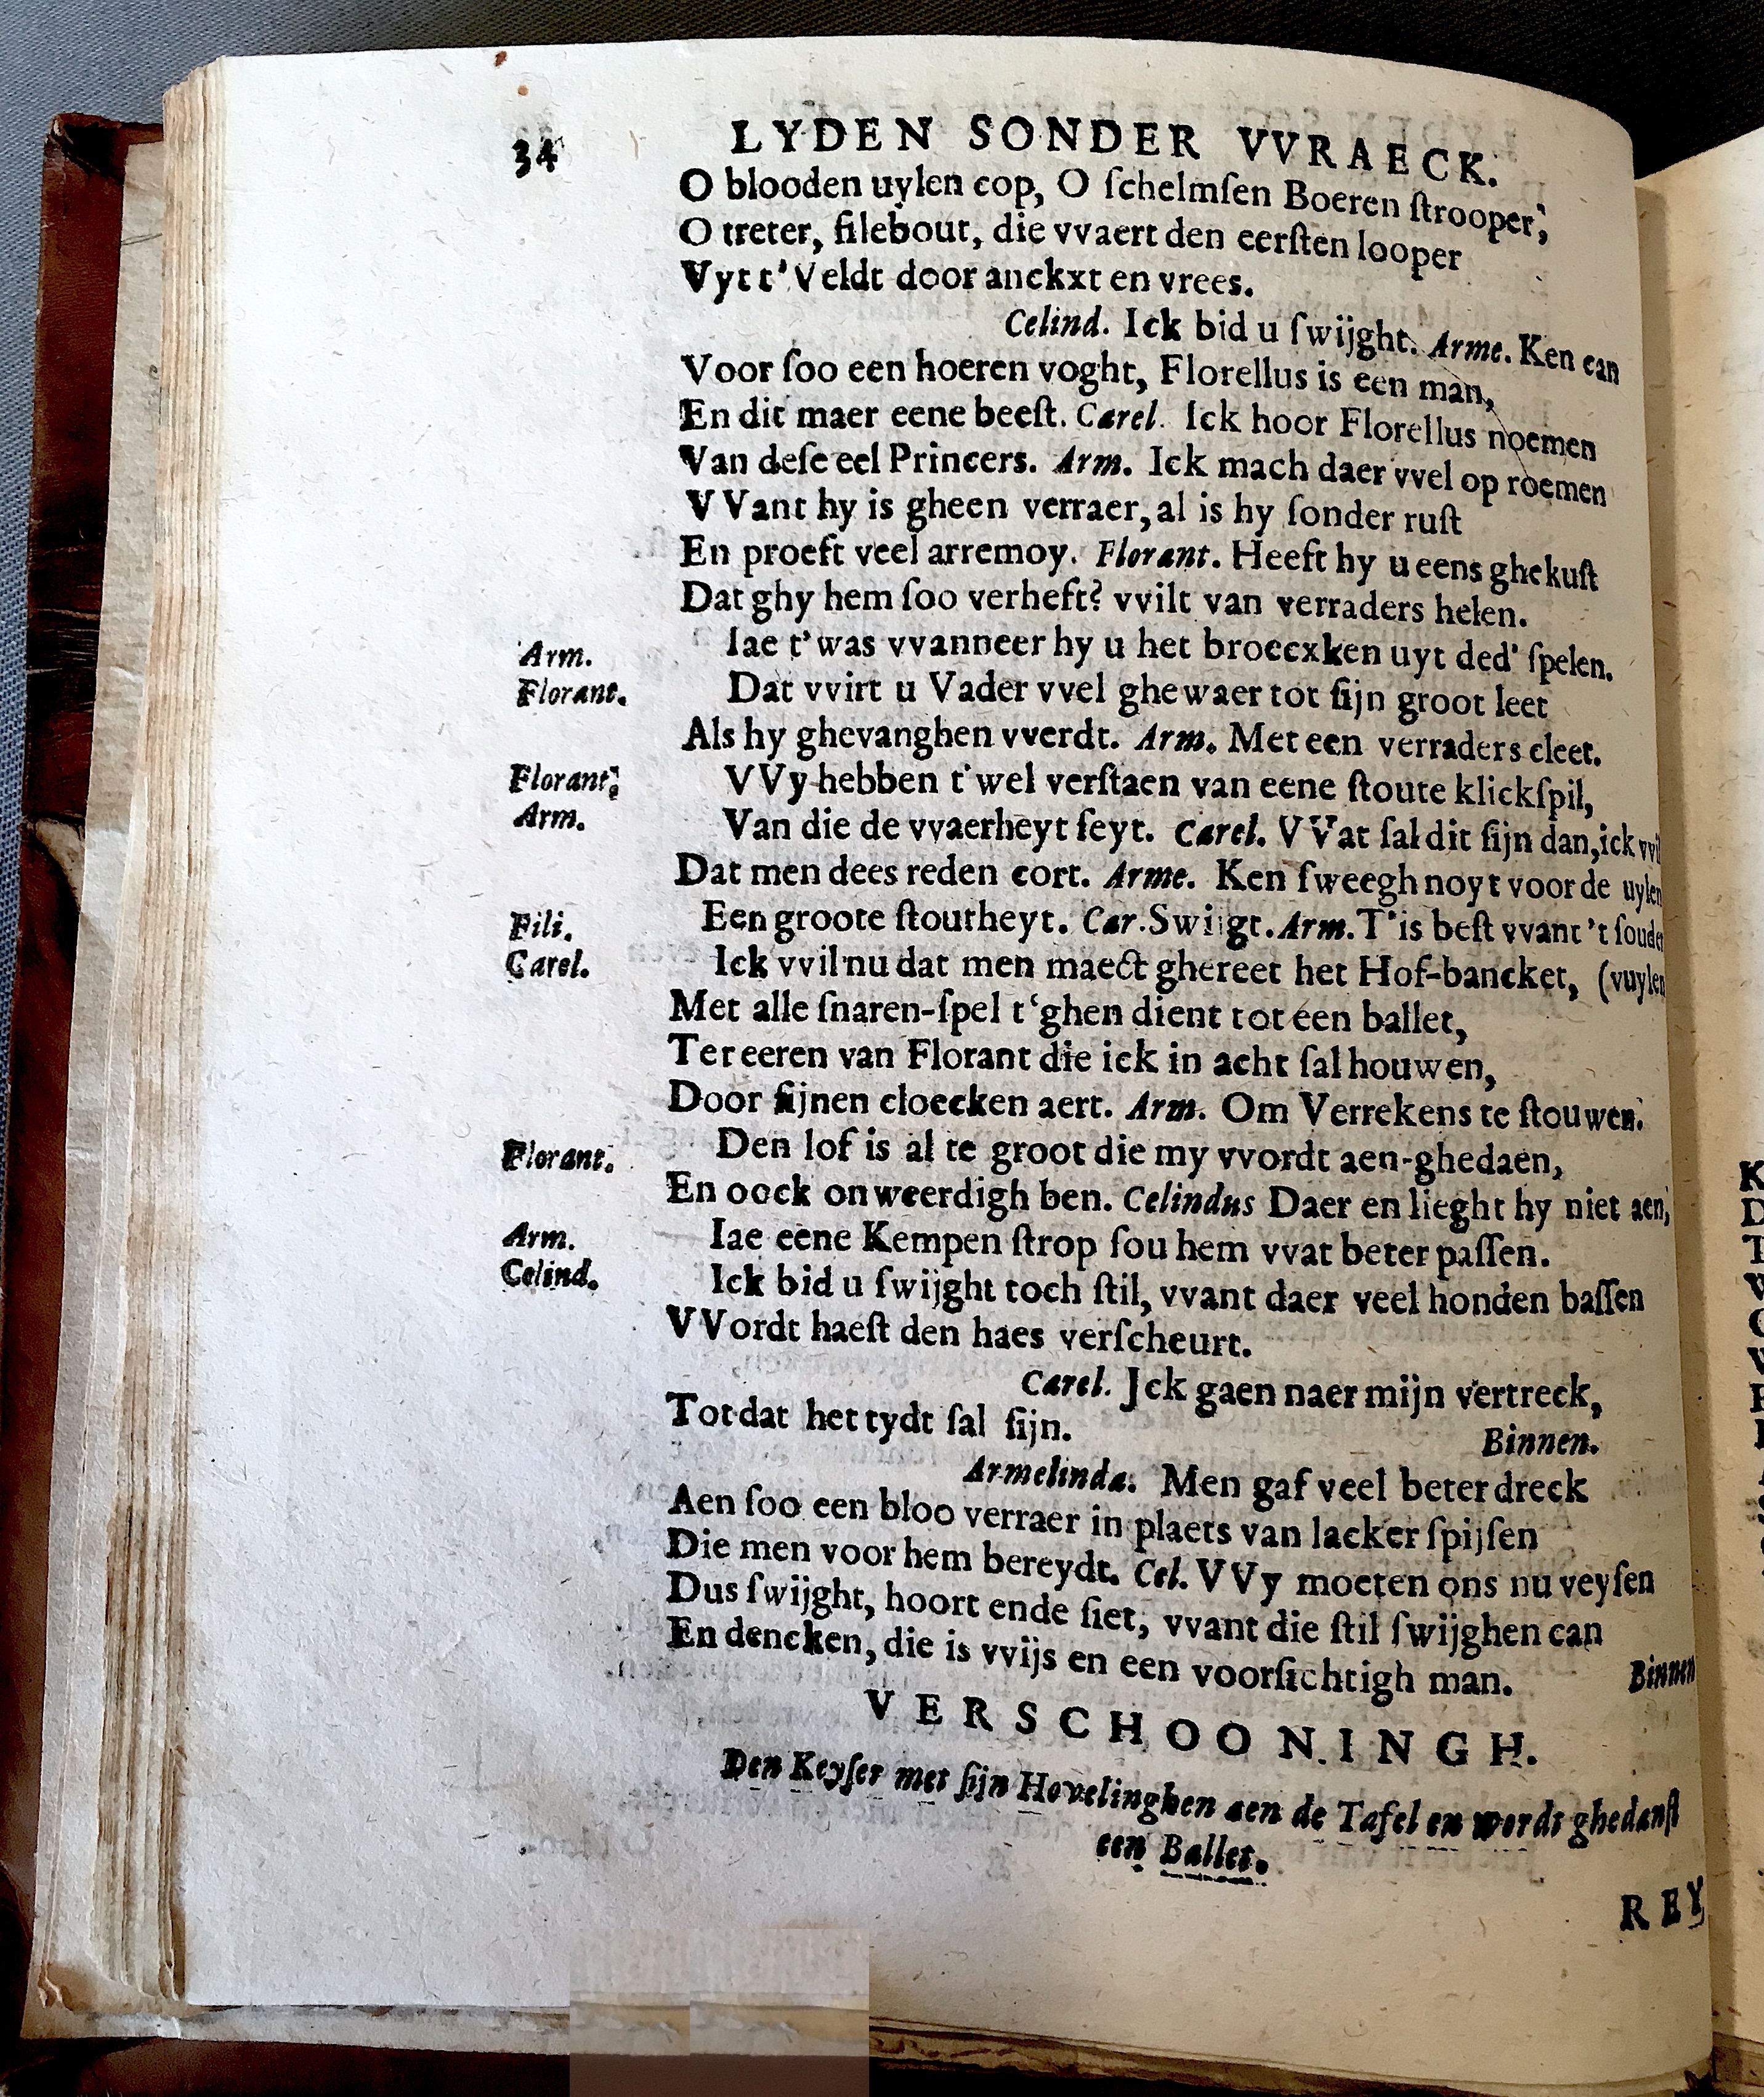 34 LYDEN SONDER VVRAECK.
O blooden uylen cop, O ſchelmſen Boeren ſtrooper,
O treter, filebout, die vvaert den eerſten looper
Vyt t'Veldt door anckxt en vrees.
Celind. Ick bid u ſwijght. Arme. Ken can
Voor ſoo een hoeren voght, Florellus is een man,
En dit maer eene beeſt. Carel. Ick hoor Florellus noemen
Van deſe eel Princers. Arm. Ick mach daer vvel op roemen
VVant hy is gheen verraer, al is hy ſonder ruſt
En proeft veel arremoy. Florant. Heeft hy u eens ghekuſt
Dat ghy hem ſoo verheft? vvilt van verraders helen.
Arm. Iae t'was vvanneer hy u het broecxken uyt ded' ſpelen.
Florant. Dat vvirt u Vader vvel ghewaer tot ſijn groot leet
Als hy ghevanghen vverdt. Arm. Met een verraders cleet.
Florant. VVy hebben t'wel verſtaen van eene ſtoute klickſpil,
Arm. Van die de vvaerheyt ſeyt. Carel. VVat ſal dit ſijn dan, ick vvil
Dat men dees reden cort. Arme. Ken ſweegh noyt voor de uylen
Fili. Een groote ſtoutheyt. Car. Swijgt. Arm. T'is beſt vvant 't ſouden
Carel. Ick vvil nu dat men maect ghereet het Hof-bancket, (vuylen
Met alle ſnaren-ſpel t'ghen dient tot een ballet,
Ter eeren van Florant die ick in acht ſal houwen,
Door ſijnen cloecken aert. Arm. Om Verrekens te ſtouwen.
Florant. Den lof is al te groot die my vvordt aen-ghedaen,
En oock onweerdigh ben. Celindus Daer en lieght hy niet aen,
Arm. Iae eene Kempen ſtrop ſou hem vvat beter paſſen.
Celind. Ick bid u ſwijght toch ſtil, vvant daer veel honden baſſen
VVordt haeſt den haes verſcheurt.
Carel. Jck gaen naer mijn vertreck,
Tot dat het tydt ſal ſijn.
Binnen.
Armelinda. Men gaf veel beter dreck
Aen ſoo een bloo verraer in plaets van lacker ſpijſen
Die men voor hem bereydt. Cel. VVy moeten ons nu veyſen
Dus ſwijght, hoort ende ſiet, vvant die ſtil ſwijghen can
En dencken, die is vvijs en een voorſichtigh man.
Binnen
VERSCHOONINGH.
Den Keyſer met ſijn Hovelinghen aen de Tafel en wordt ghedanſt
een Ballet.
REY